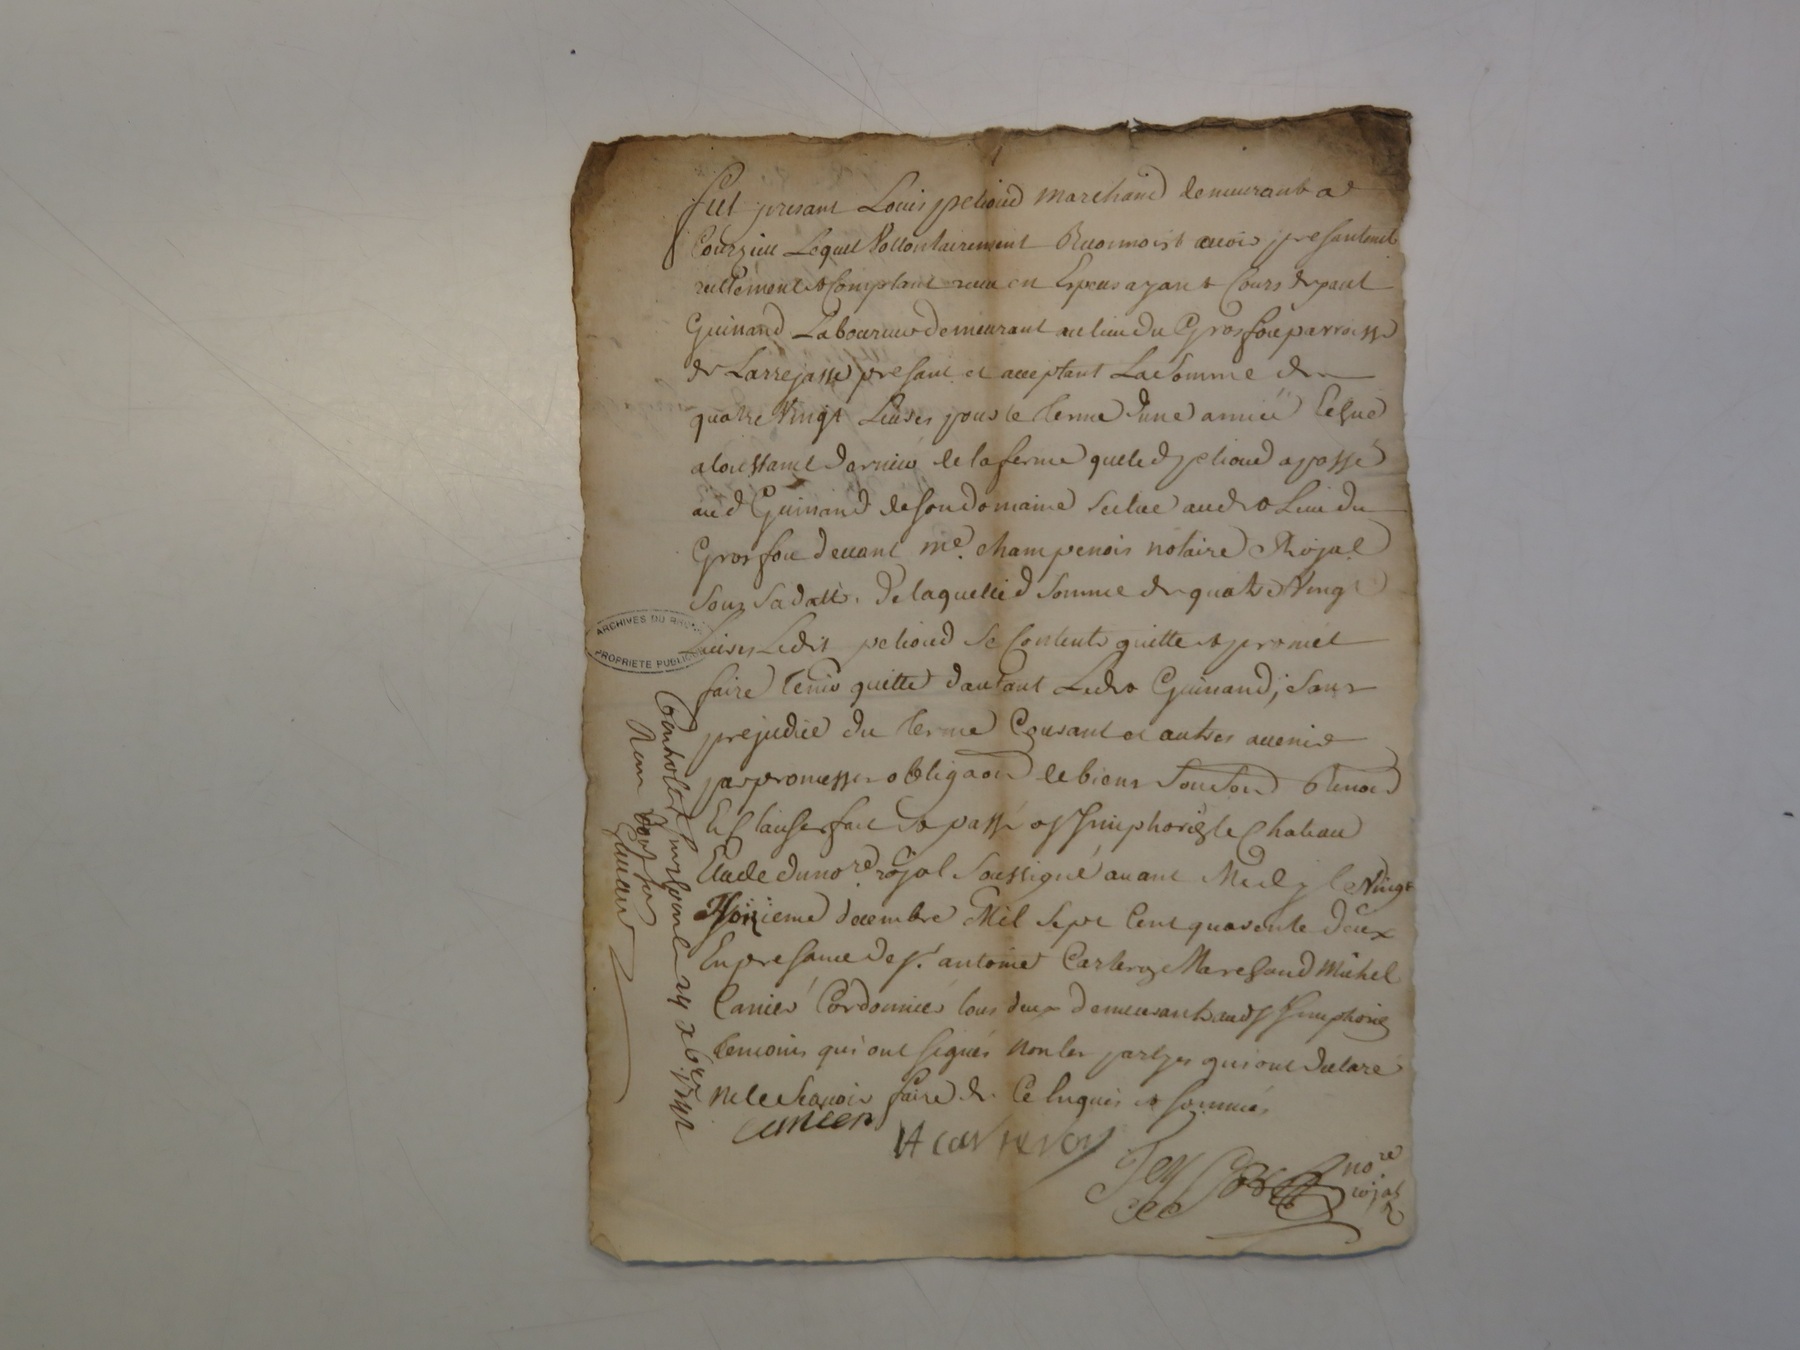 Fut presant Louis peliond marchand demeurant a
Courzieu Lequel Vollontairement Reconnoist avoir presantemt
reellement et Comptant receu en Espesses ayant Cours de paul
Guinand Laboureur demeurant au lieu du Gros fou parroisse
de Larrejasse presant et acceptant La Somme de
quatre Vingt Livres pour le terme d'une année Echue
a la toussaint darnier de la ferme que led peliond a passé
aud Guinand de son domaine scitue audt Lieu du
Gros fou devant me. champenois notaire Royal
sous sa datte. De laquelle d somme de quatre Vingt
Livres Ledit peliond se Contente quitte et promet
faire tenir quitte d'autant Ledt Guinand, sans
prejudice du terme Courant et autres avenir
par promesses obligaon de biens
Et Clauses fait et passé a St Simphorien le Chateau
Etude du nore royal soussigné avant Midy le Vingt
troizieme decembre Mil sept Cent quarente deux
En presance de sr. antoine Carteron Marchand Michel
Canier Cordonnier tous deux demeurants aud St Simphorien
temoins qui ont signés non les partyes qui ont declaré
ne le sçavoir faire de Ce Enquis et sommés
canier
A carteron
nore
royal
ARCHIVES DU RHONE
PROPRIETE PUBLIQUE
Controllé a St Simphorien le 24 xbre 1742
Receu